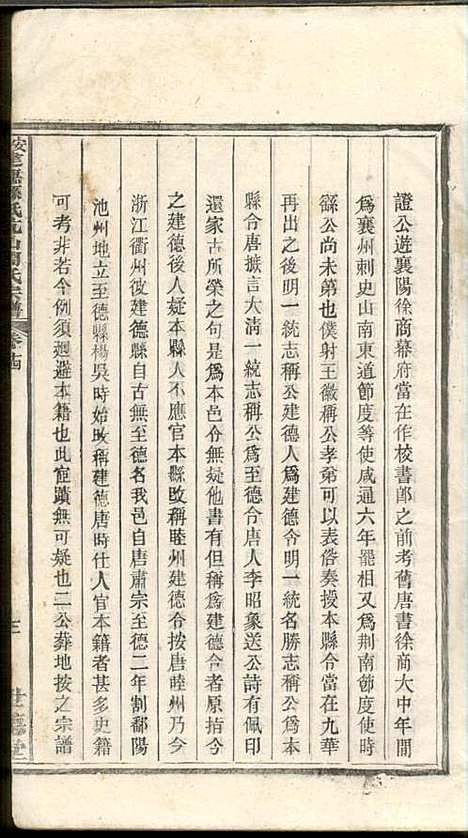 證公遊襄陽徐商幕府當在作校書郎之前考舊唐書徐商大中年間
爲襄州刺史山南東道節度等使咸通六年罷相又爲荆南節度使時
繇公尚未第也僕射王徽稱公孝弟可以表俗奏授本縣令當在九華
再出之後明一統志稱公建德人爲建德令明一統名勝志稱公爲本
縣令唐摭言大淸一統志稱公爲至德令唐人李昭象送公詩有佩印
還家古所榮之句是爲本邑令無疑他書有但稱爲建德令者原指今
之建德後人疑本縣人不應官本縣改稱睦州建德令按唐睦州乃今
浙江衢州彼建德縣自古無至德名我邑自唐肅宗至德二年割鄱陽
池州地立至德縣楊吳時始改稱建德唐時仕人官本籍者甚多史籍
可考非若今例須廻避本籍也此宦蹟無可疑也二公葬地按之宗譜
氏宗譜
卷十四